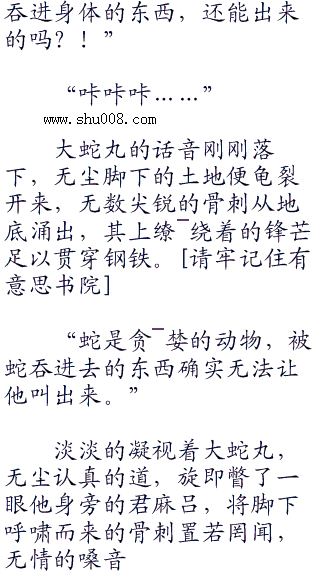 吞进身体的东西，还能出来
的吗？！”
“咔咔咔……”
www.shu008.com
大蛇丸的话音刚刚落
下，无尘脚下的土地便龟裂
开来，无数尖锐的骨刺从地
底涌出，其上缭¯绕着的锋芒
足以贯穿钢铁。[请牢记住有
意思书院]
“蛇是贪¯婪的动物，被
蛇吞进去的东西确实无法让
他叫出来。”
淡淡的凝视着大蛇丸，
无尘认真的道，旋即瞥了一
眼他身旁的君麻吕，将脚下
呼啸而来的骨刺置若罔闻，
无情的嗓音